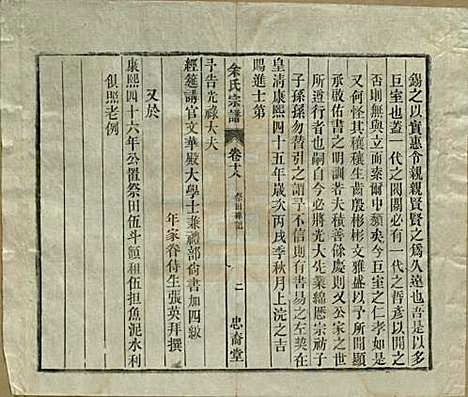 錫之以實惠令親親賢賢之為久遠也吾是以多
巨室也蓋一代之閥閱必有一代之哲彥以開
否則無與立而索爾中蘋矣今巨室之仁孝如是
又何怪其穰穰生齒殷彬彬文雅盛以予所顯
承啟佑書之明訓若夫積善餘慶則以公家之世
所邁行者也嗣自今必將光大先業綿厯宗祊子
子孫孫勿替引之謂予不信則有書易之左契在
皇清康熙四十五年歲次丙戌季秋月上浣之吉
賜進士第
余氏宗譜
卷十八
祭田雜記
二
忠裔堂
予告光祿大夫
經筵講官文華殿大學士兼禮部尚書加四級
年家眷侍生張英拜撰
又於
康熙四十六年公置祭田伍斗颤租伍担魚泥水利
俱照老例